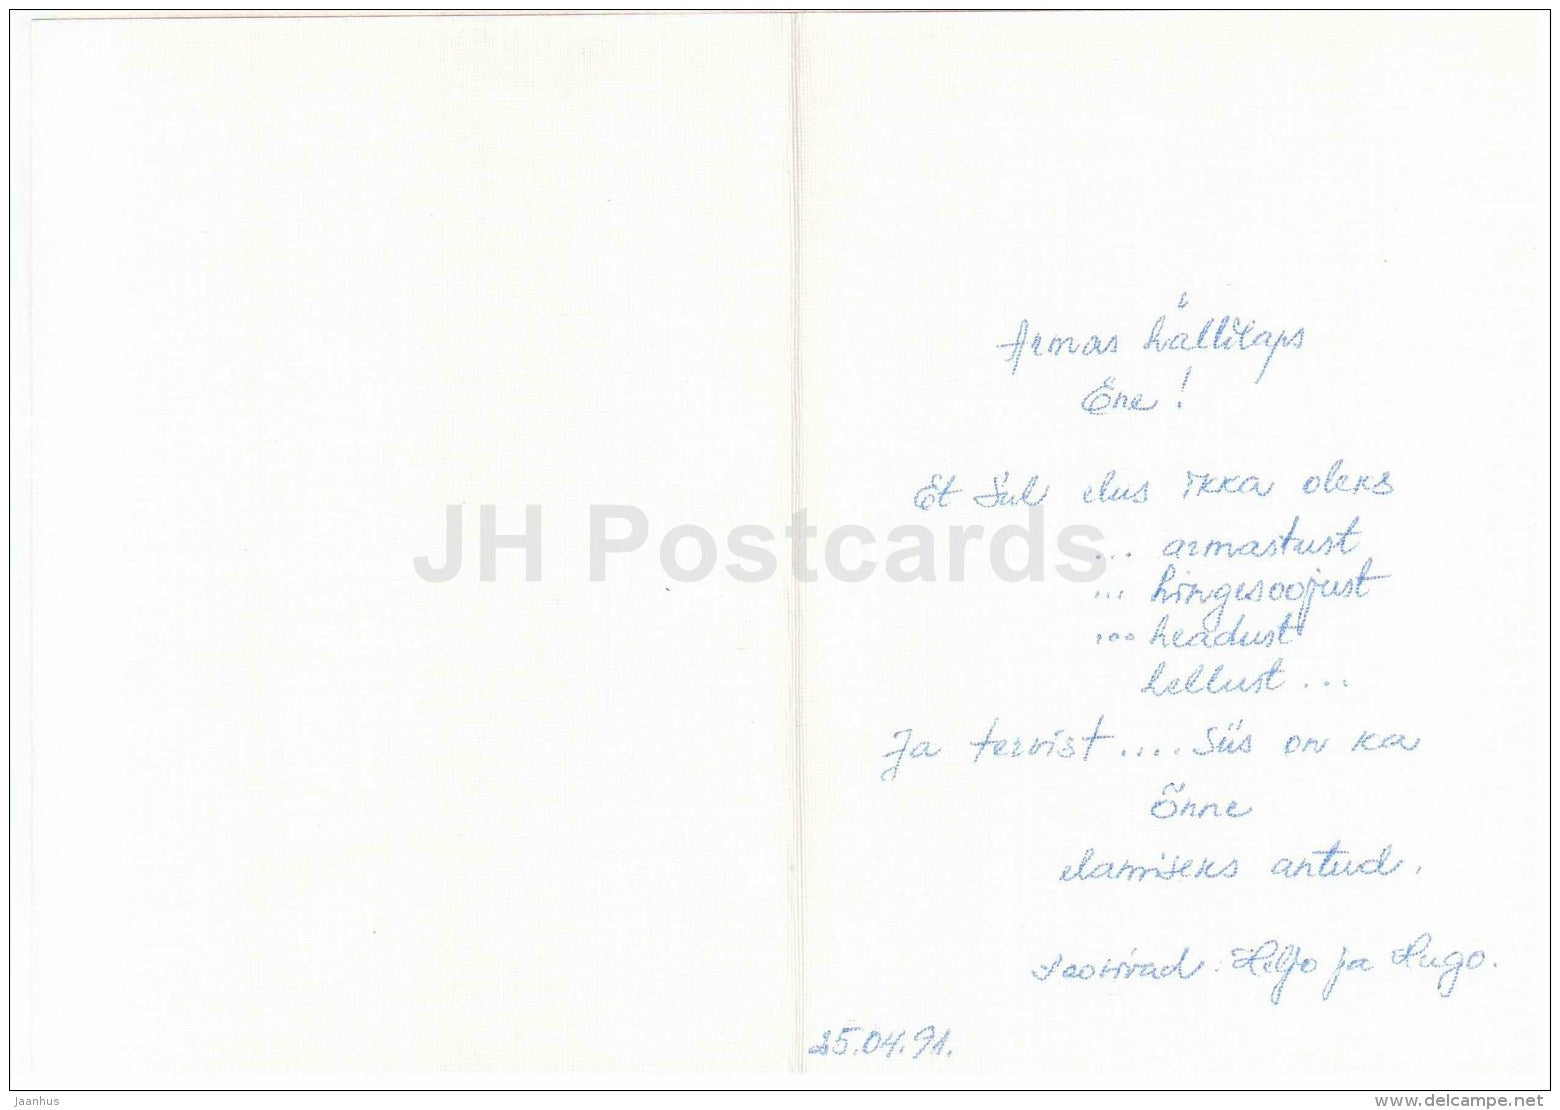 Armas hällilaps
Ene!
Et Sul elus ikka oleks
... armastust
... hingesoojust
... headust
hellust...
Ja tervist.... Siis on ka
õnne
elamiseks antud.
Soovivad: Heljo ja Hugo.
25.04.91.
JH Postcards
Jaanhus
www.delcampe.net